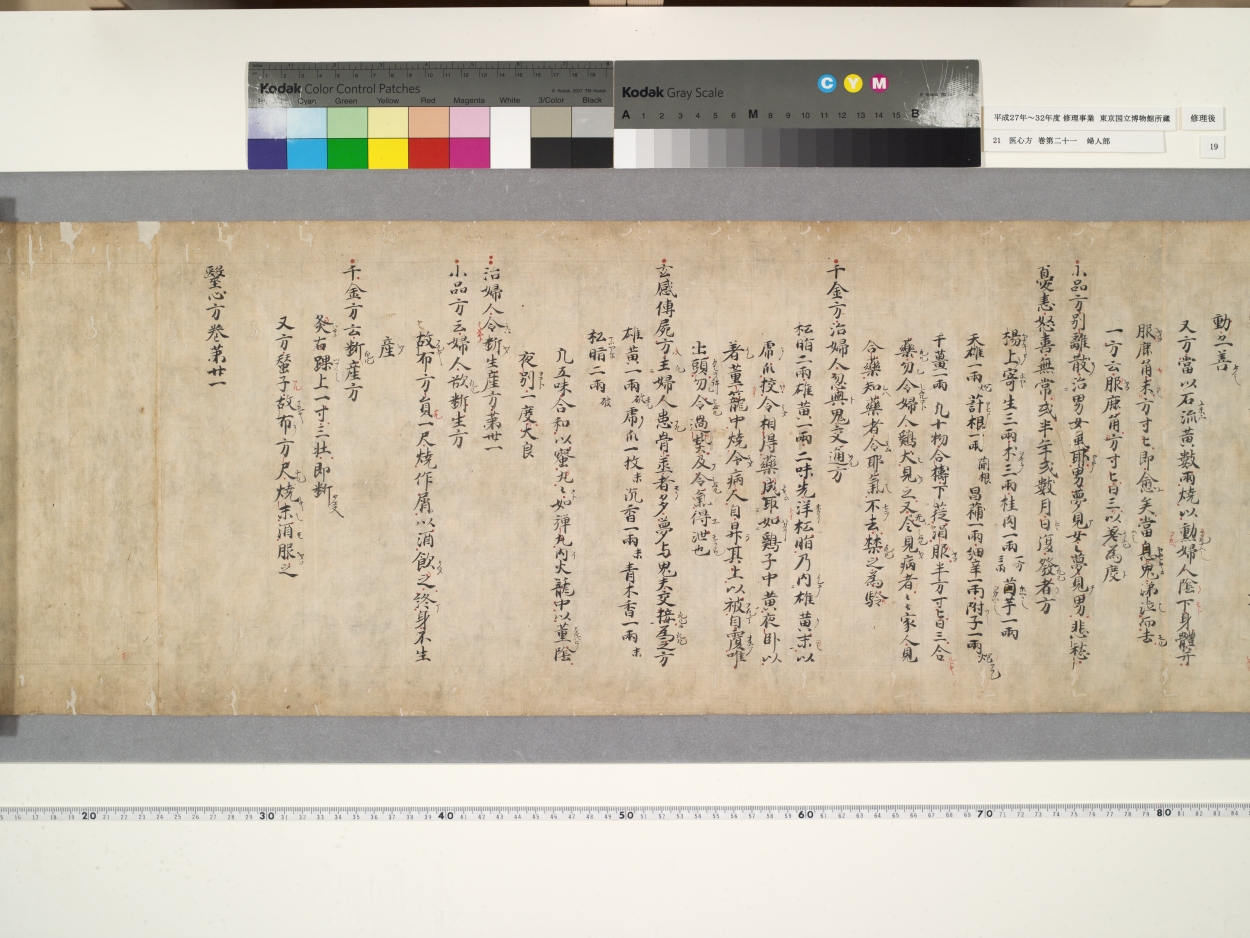 Kodak Color Control Patches
Cyan Green Yellow Red Magenta White 3/Color Black
Kodak Gray Scale
C Y M
A 1 2 3 4 5 6 M 8 9 10 11 12 13 14 15 B
平成27年～32年度 修理事業 東京国立博物館所蔵
修理後
21 医心方 巻第二十一 婦人部
19
動之善
又方當以石流黄數兩燒以動婦人陰下身體
服鹿角末方寸匕即愈矣當見鬼涕泣而去
一方云服鹿角方寸匕日三以差為度
小品方別離散治男女風耶男夢見女女夢見男悲愁
憂恚怒喜無常或半年或數月日復發者方
楊上寄生三兩朮三兩桂肉一兩茵芋一兩
天雄一兩 根一兩 菖蒲一兩細辛一兩附子一兩
干薑一兩 凡十物合檮下篵酒服半方寸匕日三合
藥勿令婦人鷄犬見之又令見病者々家人見
合藥知藥者令耶氣不去禁之為驗
千金方治婦人忽與鬼交通方
松脂二兩雄黄一兩二味先洋松脂乃内雄黄末以
虎爪挍令相得藥成取如鷄子中黄夜卧以
著薰籠中燒令病人自升其上以被自覆唯
出頭勿令過熱及令氣得泄也
玄感傳屍方主婦人患骨蒸者多夢与鬼夫交接為之方
雄黄一兩 虎爪一枚末沉香一兩末青木香一兩末
松脂二兩破
凡五味合和以蜜丸々如弾丸内火籠中以薰陰
夜別一度大良
治婦人令斷生產方第卅一
小品方云婦人欲斷生方
故布方員一尺燒作屑以酒飲之終身不生
產
千金方云斷產方
灸右踝上一寸三壯即斷
又方蚕子故布方尺燒末酒服之
醫心方卷第廿一
20 30 40 50 60 70 80